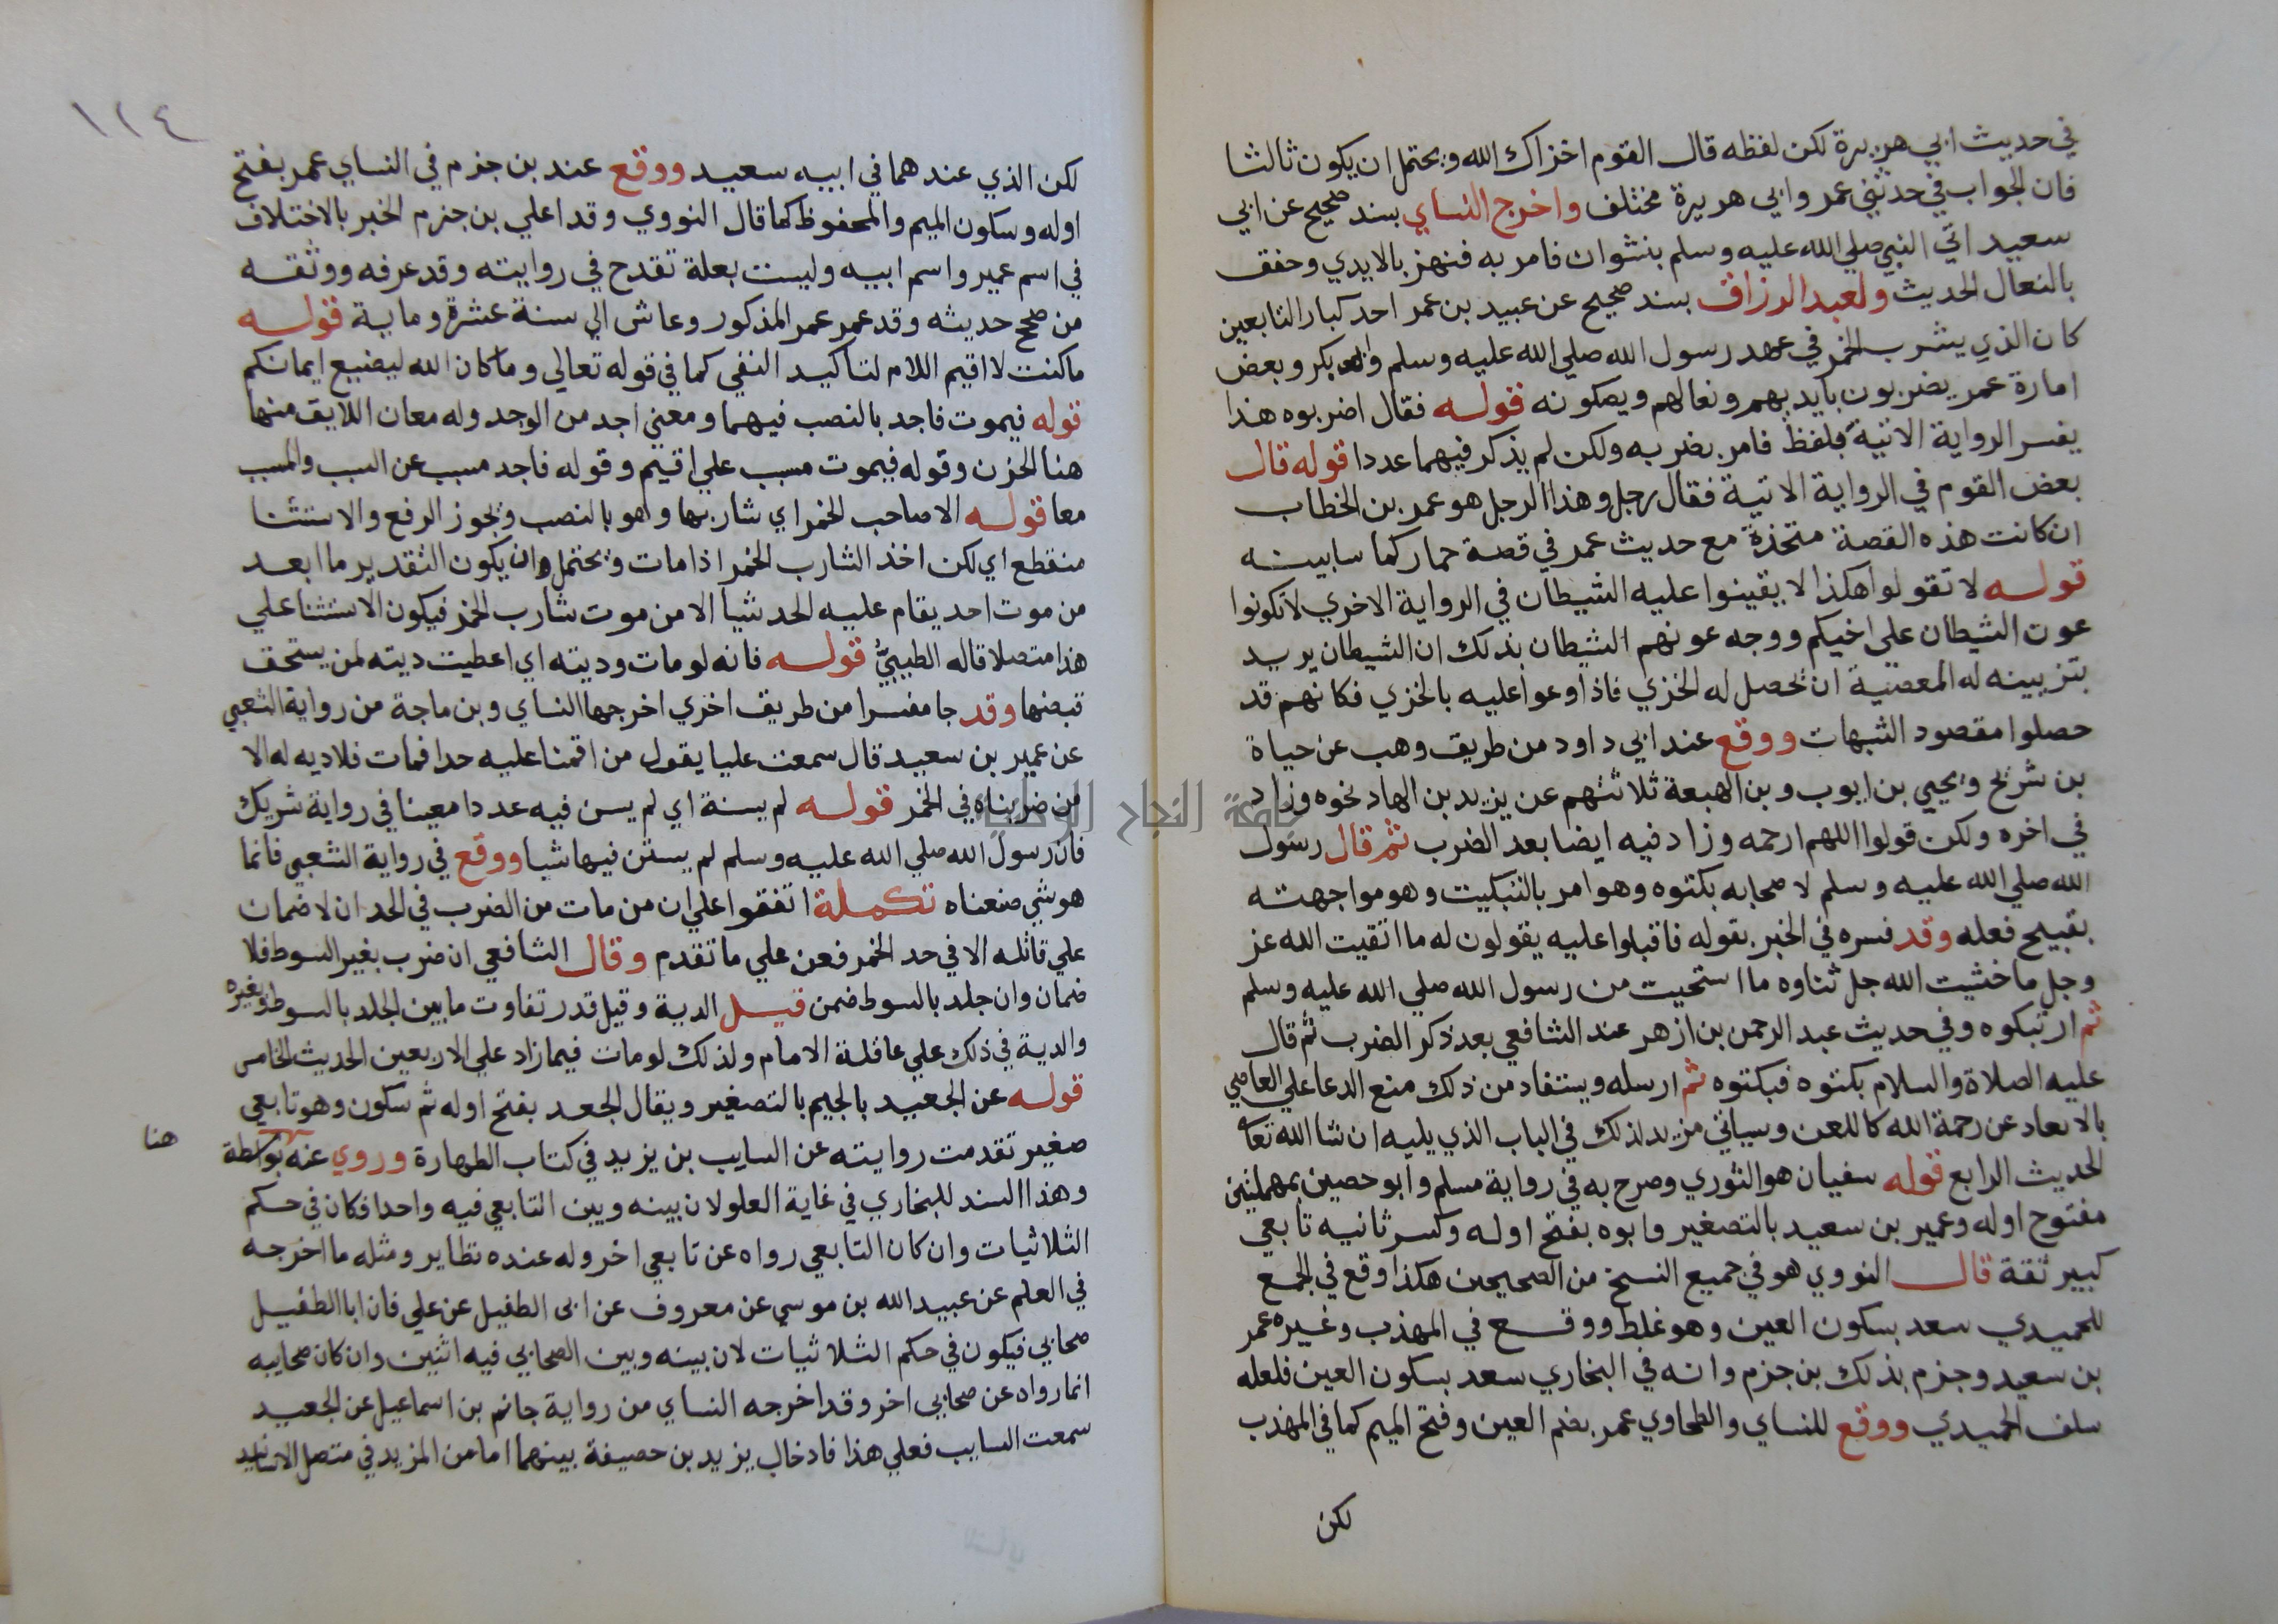 في حديث ابي هريرة لكن لفظه قال القوم اخزاك الله ويحتمل ان يكون ثالثا
فان الجواب في حديثي عمر وابي هريرة مختلف واخرج النساي بسند صحيح عن ابي
سعيد اتي النبي صلي الله عليه وسلم بنشوان فامر به فنهز بالايدي وخفق
بالنعال الحديث ولعبد الرزاق بسند صحيح عن عبيد بن عمر احد كبار التابعين
كان الذي يشرب الخمر في عهد رسول الله صلي الله عليه وسلم وابي بكر وبعض
امارة عمر يضربون بايديهم ونعالهم ويصكونه قوله فقال اضربوه هذا
يفسر الرواية الاتية بلفظ فامر بضربه ولكن لم يذكر فيهما عددا قوله قال
بعض القوم في الرواية الاتية فقال رجل وهذا الرجل هو عمر بن الخطاب
ان كانت هذه القصة متحذة مع حديث عمر في قصة حمار كما سابينه
قوله لا تقولوا هكذا لا يقينوا عليه الشيطان في الرواية الاخري لا تكونوا
عون الشيطان علي اخيكم ووجه عونهم الشيطان بذلك ان الشيطان يريد
بتزيينه له المعصية ان تحصل له الخزي فاذا وعوا عليه بالخزي فكانهم قد
حصلوا مقصود الشبهات ووقع عند ابي داود من طريق وهب عن حياة
بن شريح ويحيي بن ايوب وبن الهيعة ثلاثتهم عن يزيد بن الهاد نحوه وزاد
في اخره ولكن قولوا اللهم ارحمه وزاد فيه ايضا بعد الضرب ثم قال رسول
الله صلي الله عليه وسلم لاصحابه بكتوه وهو امر بالتبكيت وهو مواجهته
بقبيح فعله وقد فسره في الخبر بقوله فاقبلوا عليه يقولون له ما اتقيت الله عز
وجل ما خشيت الله جل ثناوه ما استحيت من رسول الله صلي الله عليه وسلم
ثم ارتبكوه وفي حديث عبد الرحمن بن ازهر عند الشافعي بعد ذكر الضرب ثم قال
عليه الصلاة والسلام بكتوه فبكتوه ثم ارسله ويستفاد من ذلك منع الدعا علي العاصي
بالابعاد عن رحمة الله كاللعن وسياتي مزيد لذلك في الباب الذي يليه ان شا الله تعا
الحديث الرابع قوله سفيان هو الثوري وصرح به في رواية مسلم وابو حصين بمهملتين
مفتوح اوله وعمير بن سعيد بالتصغير وابوه بفتح اوله وكسر ثانيه تابعي
كبير ثقة قال النووي هو في جميع النسخ من الصحيحين هكذا وقع في الجمع
للحميدي سعد بسكون العين وهو غلط ووقع في المهذب وغيره عمر
بن سعيد وجزم بذلك بن جزم وانه في البخاري سعد بسكون العين فلعله
سلف الحميدي ووقع للنساي والطحاوي عمر بضم العين وفتح الميم كما في المهذب
لكن
١٢٤
لكن الذي عندهما في ابيه سعيد ووقع عند بن جزم في النساي عمر بفتح
اوله وسكون الميم والمحفوظ كما قال النووي وقد اعلي بن جزم الخبر بالاختلاف
في اسم عمير واسم ابيه وليست بعلة تقدح في روايته وقد عرفه ووثقه
من صحح حديثه وقد عمر عمر المذكور وعاش الي سنة عشرة وماية قوله
ما كنت لا اقيم اللام لتاكيد النفي كما في قوله تعالي وما كان الله ليضيع ايمانكم
قوله فيموت فاجد بالنصب فيهما ومعني اجد من الوجد وله معان اللايق منها
هنا الحزن وقوله فيموت مسبب علي اقيم وقوله فاجد مسبب عن السبب والمسبب
معا قوله الا صاحب الخمر اي شاربها وهو بالنصب ويجوز الرفع والاستثنا
منقطع اي لكن اخذ الشارب الخمر اذا مات ويحتمل ان يكون التقدير ما ابعد
من موت احد يقام عليه الحد شيا الا من موت شارب الخمر فيكون الاستثنا علي
هذا متصلا قاله الطيبي قوله فانه لو مات وديته اي اعطيت ديته لمن يستحق
قبضها وقد جا مفسرا من طريق اخري اخرجها النساي وبن ماجة من رواية الشعبي
عن عمير بن سعيد قال سمعت عليا يقول من اقمنا عليه حدا فمات فلا ديه له الا
من ضربناه في الخمر قوله لم يسنة اي لم يسن فيه عددا معينا في رواية شريك
فان رسول الله صلي الله عليه وسلم لم يستن فيها شيا ووقع في رواية الشعبي فانما
هو شي صنعناه تكملة اتفقوا علي ان من مات من الضرب في الحد ان لا ضمان
علي قاتله الا في حد الخمر فعن علي ما تقدم وقال الشافعي ان ضرب بغير السوط فلا
ضمان وان جلد بالسوط ضمن قيل الدية وقيل قدر تفاوت ما بين الجلد بالسوط وبغيره
والدية في ذلك علي عاقلة الامام ولذلك لو مات فيما زاد علي الاربعين الحديث الخامس
قوله عن الجعيد بالجيم بالتصغير ويقال الجعد بفتح اوله ثم سكون وهو تابعي
صغير تقدمت روايته عن السايب بن يزيد في كتاب الطهارة وروي عنه بواسطة
هنا
وهذا السند للبخاري في غاية العلو لان بينه وبين التابعي فيه واحدا فكان في حكم
الثلاثيات وان كان التابعي رواه عن تابعي اخر وله عنده نظاير ومثله ما اخرجه
في العلم عن عبيد الله بن موسي عن معروف عن ابي الطفيل عن علي فان ابا الطفيل
صحابي فيكون في حكم الثلاثيات لان بينه وبين الصحابي فيه اثنين وان كان صحابيه
انما رواه عن صحابي اخر وقد اخرجه النساي من رواية حاتم بن اسماعيل عن الجعيد
سمعت السايب فعلي هذا فادخال يزيد بن حصيفة بينهما اما من المزيد في متصل الاسانيد
جامعة النجاح الوطنية